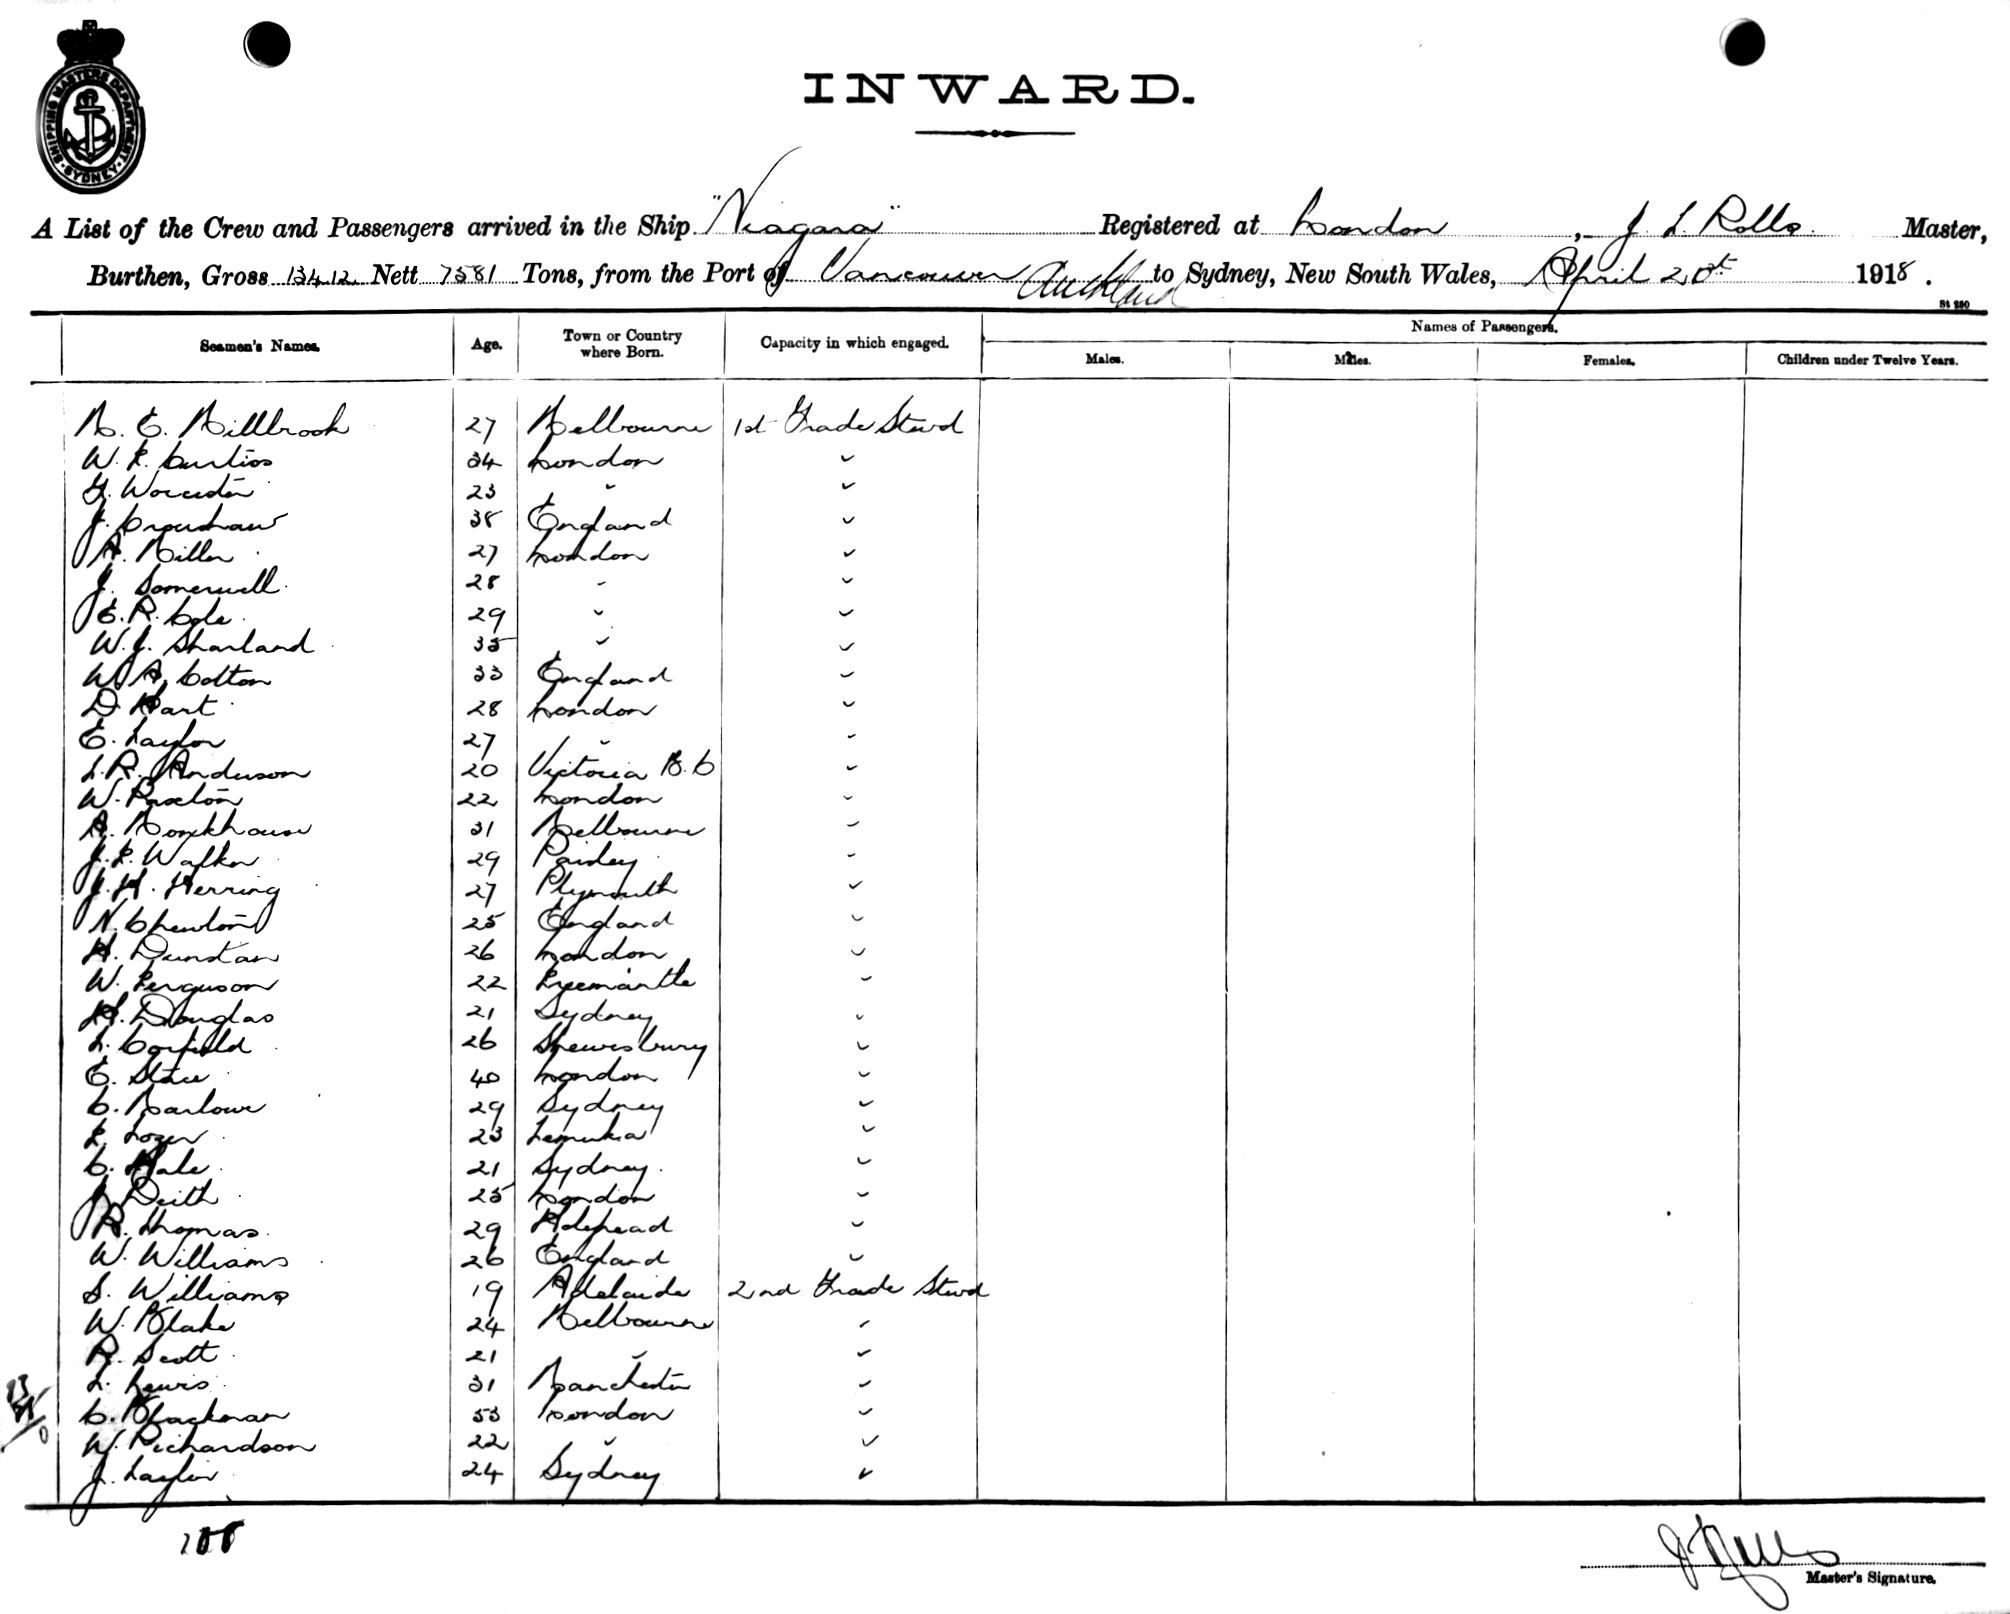 SHIPPING MASTERS DEPARTMENT · SYDNEY ·
INWARD.
A List of the Crew and Passengers arrived in the Ship "Niagara" Registered at London, J. L. Rolls Master,
Burthen, Gross 13412 Nett 7581 Tons, from the Port of Vancouver Auckland to Sydney, New South Wales, April 20th 1918.
St 280
Seamen's Names. Age. Town or Country where Born. Capacity in which engaged. Names of Passengers.
Males. Males. Females. Children under Twelve Years.
M. E. Millbrook 27 Melbourne 1st Grade Stewd
W. F. Curtiss 34 London "
G. Worcester 23 " "
J. Crowshaw 38 England "
A. Miller 27 London "
J. Somerwell 28 " "
E. R. Cole 29 " "
W. J. Sharland 35 " "
W. A. Cotton 33 England "
D. Hart 28 London "
E. Taylor 27 " "
L. R. Anderson 20 Victoria B.C "
W. Paxton 22 London "
A. Monkhouse 31 Melbourne "
J. F. Walker 29 Paisley "
J. H. Herring 27 Plymouth "
N. Chewton 25 England "
H. Dunstan 26 London "
W. Ferguson 22 Freemantle "
H. Douglas 21 Sydney "
L. Corfield 26 Shrewsbury "
E. Stace 40 London "
C. Marlowe 29 Sydney "
F. Lozer 23 Temuka "
C. Hale 21 Sydney "
J. Deith 25 London "
R. Thomas 29 Holyhead "
W. Williams 26 England "
S. Williams 19 Adelaide 2nd Grade Stewd
W. Blake 24 Melbourne "
R. Scott 21 " "
L. Lewis 31 Manchester "
C. Blackman 53 London "
W. Richardson 22 " "
J. Taylor 24 Sydney "
J L Rolls
Master's Signature.